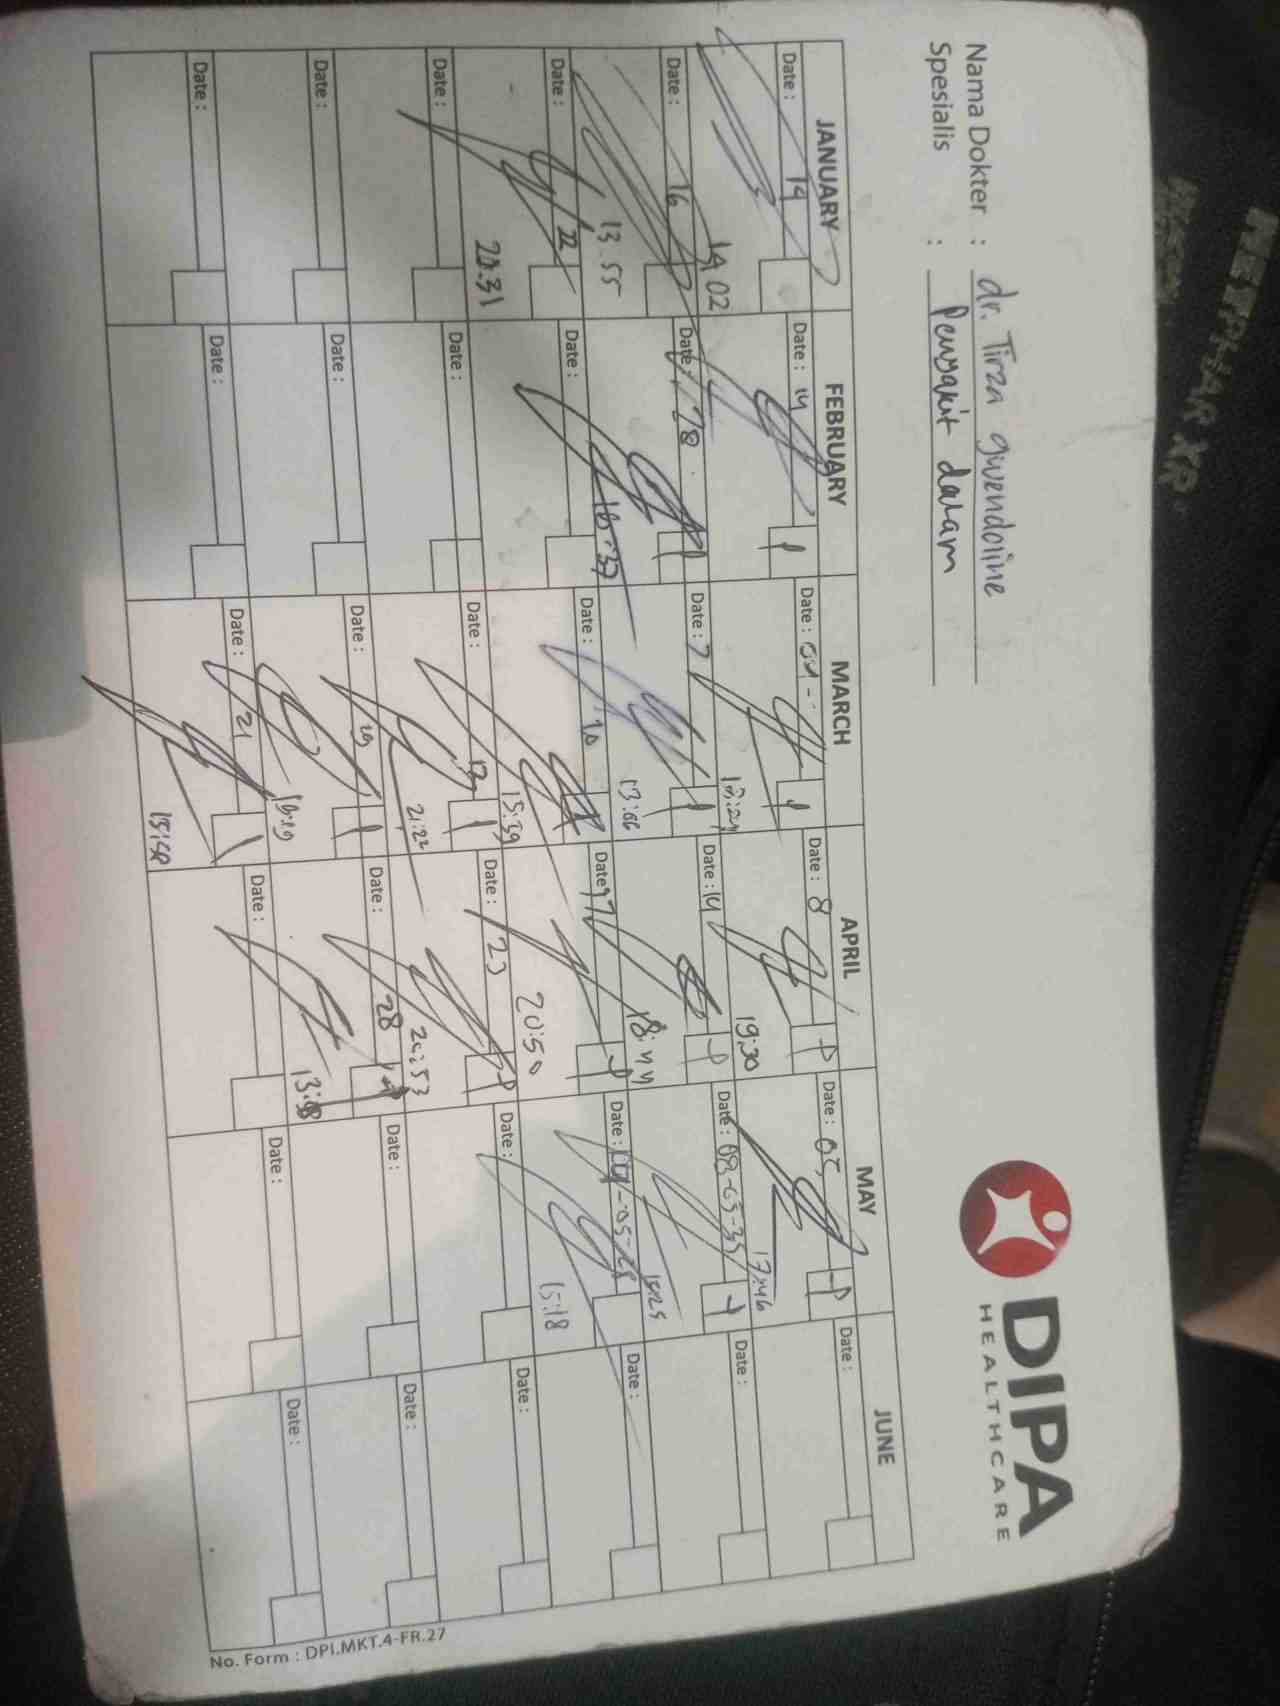 DIPA
HEALTHCARE
Nama Dokter : dr. Tirza gwendoline
Spesialis : Penyakit dalam
JANUARY FEBRUARY MARCH APRIL MAY JUNE
Date : 14 Date : 14 Date : 04- Date : 8 Date : 05 Date :
14 02 19:30 17:46
Date : 16 Date : 28 Date : 7 Date : 14 Date : Date :
13.55 13:06 18:44
Date : 22 Date : Date : 10 Date : 17 Date : Date :
20.31 15:39 20:50 15:18
Date : Date : Date : 12 Date : 23 Date : Date :
21:22 20:53
Date : Date : Date : 19 Date : 28 Date : Date :
19:19 13:
Date : Date : Date : 21 Date : Date : Date :
15:58
No. Form : DPI.MKT.4-FR.27
METPHAR XR